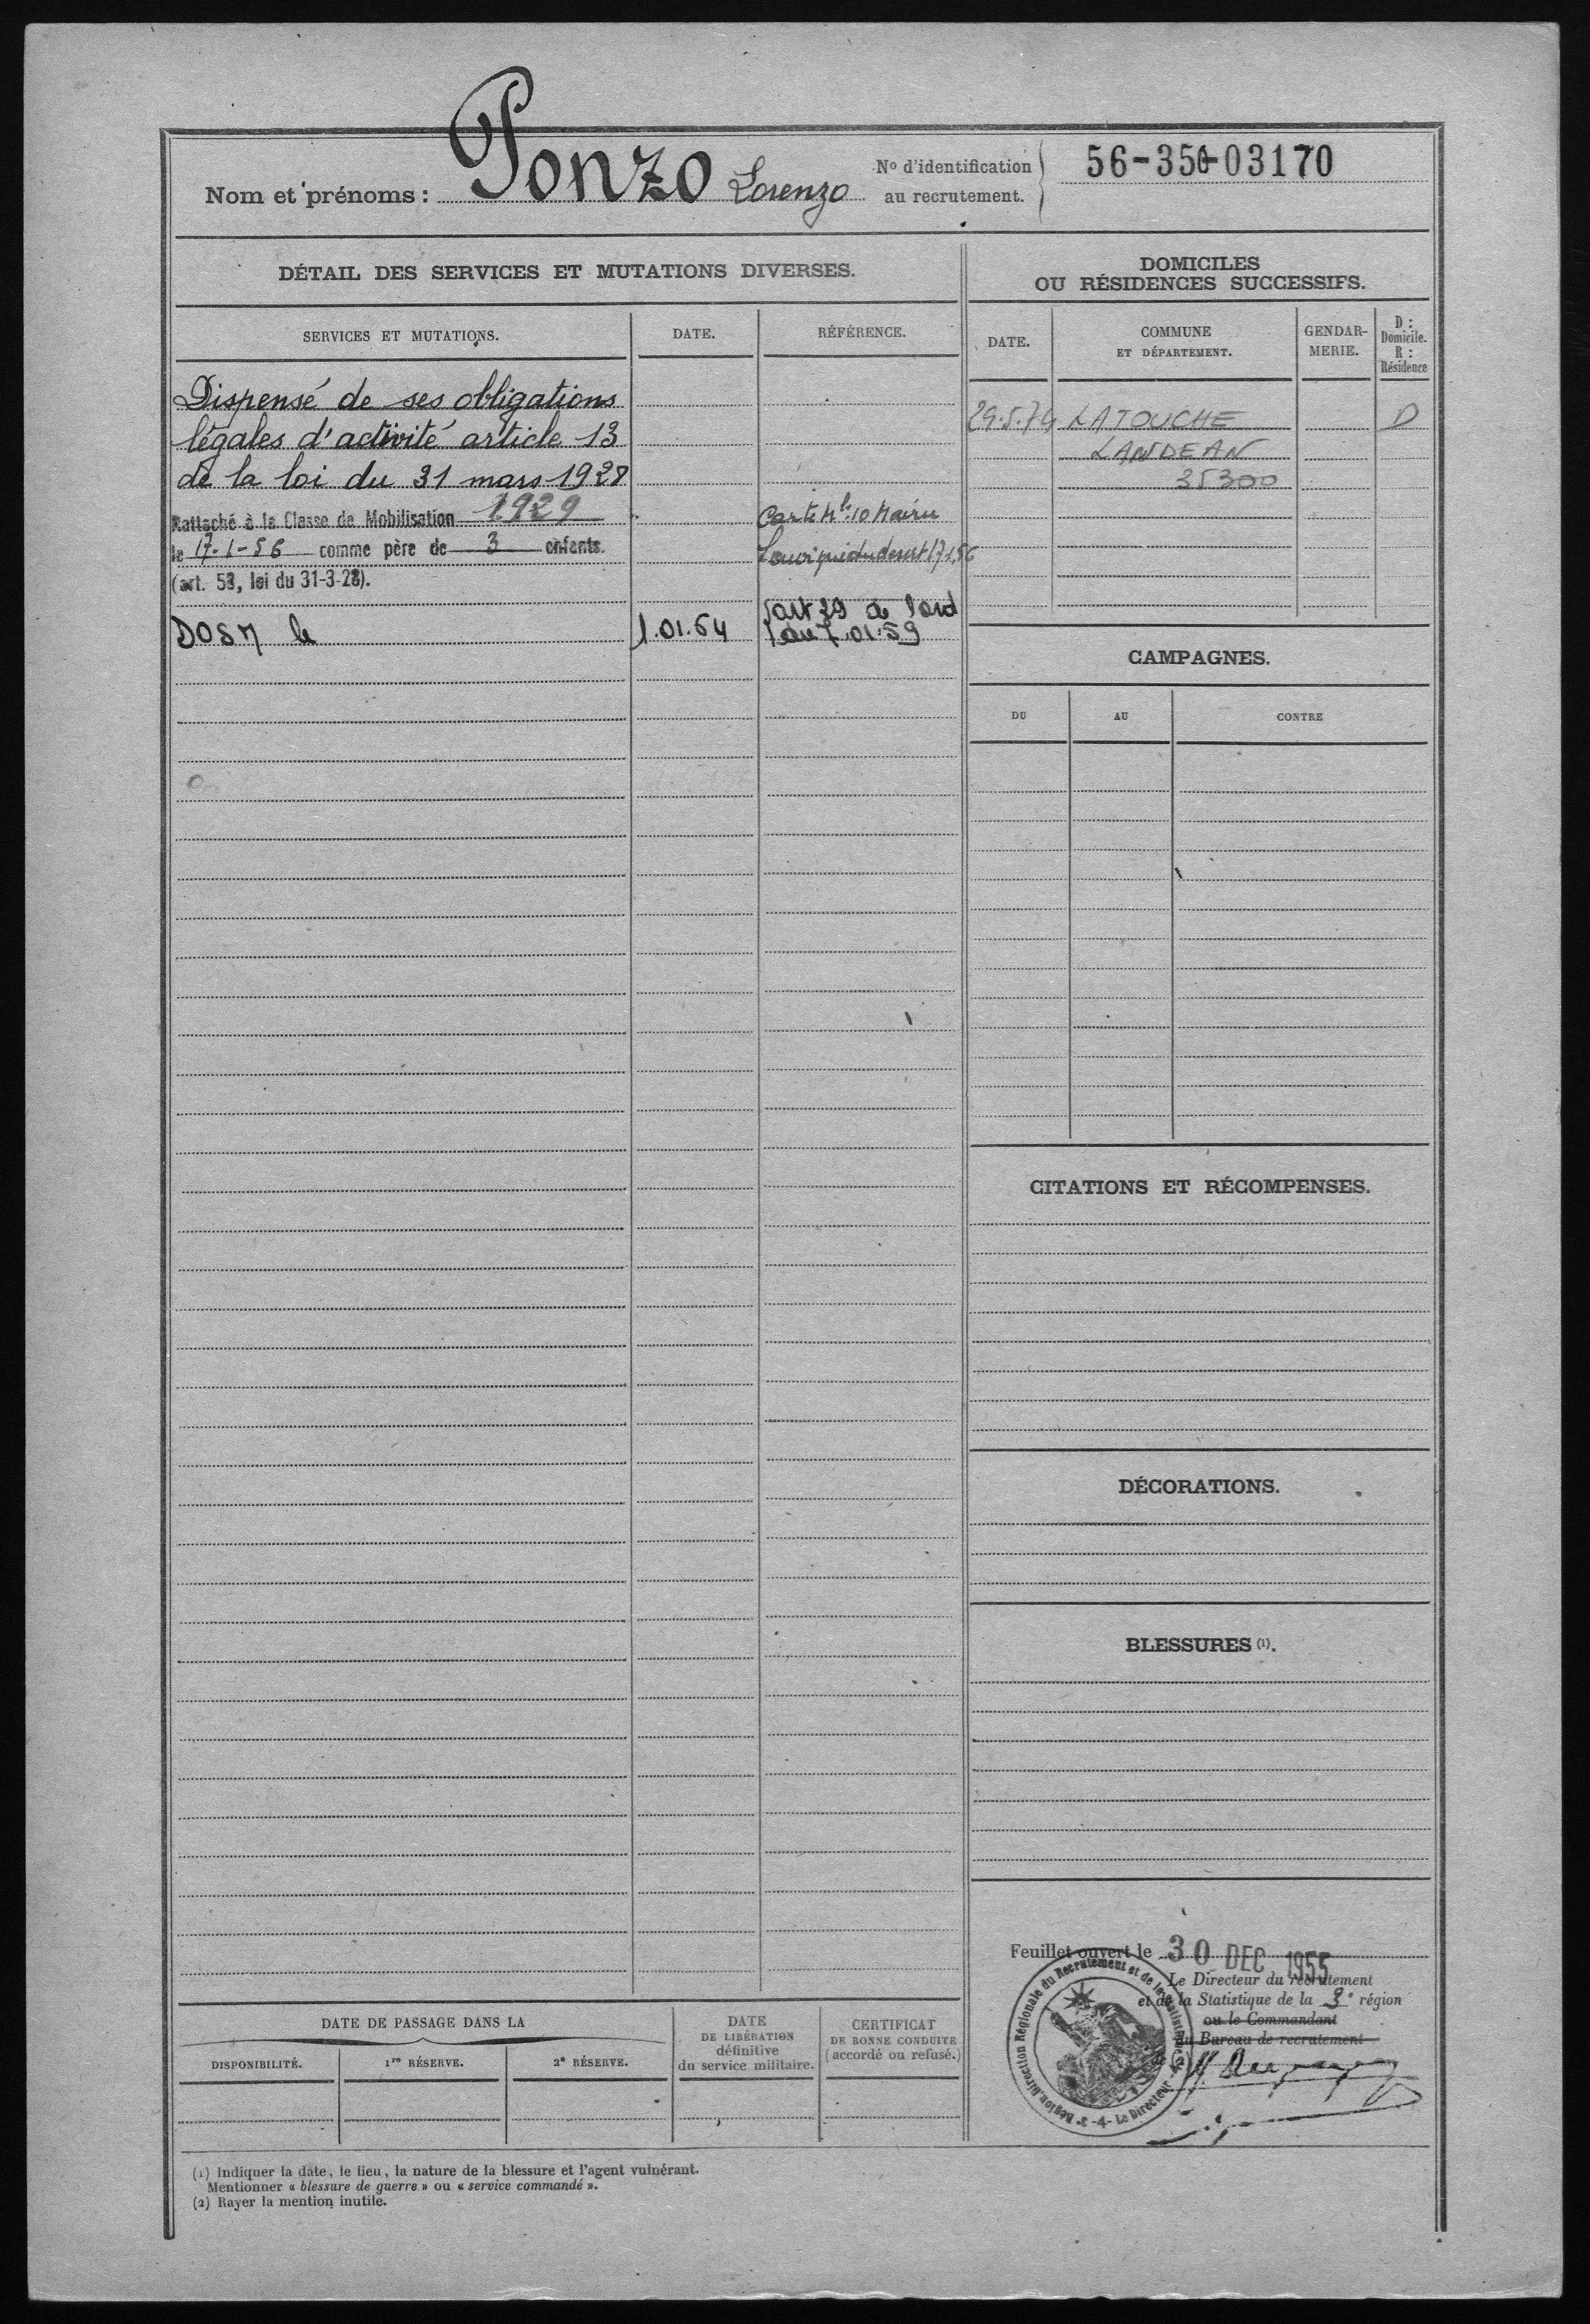 Nom et prénoms : Ponzo Lorenzo
N° d'identification au recrutement. 56-350-03170
DÉTAIL DES SERVICES ET MUTATIONS DIVERSES.
SERVICES ET MUTATIONS.
DATE.
RÉFÉRENCE.
Dispensé de ses obligations
légales d'activité article 13
de la loi du 31 mars 1928
Rattaché à la Classe de Mobilisation 1929
le 17-1-56 comme père de 3 enfants.
(art. 53, loi du 31-3-28).
Carte Nle 10 Mairie
du desert 17 1.56
DOSM le
1.01.64
art 29 de l'ord
du 7.01.59
DOMICILES
OU RÉSIDENCES SUCCESSIFS.
DATE.
COMMUNE
ET DÉPARTEMENT.
GENDAR-
MERIE.
D :
Domicile.
R :
Résidence
29.5.74 LATOUCHE D
LANDEAN
35300
CAMPAGNES.
DU
AU
CONTRE
CITATIONS ET RÉCOMPENSES.
DÉCORATIONS.
BLESSURES (1).
Feuillet ouvert le 30 DEC 1955
Le Directeur du recrutement
et de la Statistique de la 3e région
ou le Commandant
du Bureau de recrutement
(2)
Direction Régionale du Recrutement et de la Statistique
3e Région
-4- Le Directeur
DATE DE PASSAGE DANS LA
DISPONIBILITÉ.
1re RÉSERVE.
2e RÉSERVE.
DATE
DE LIBÉRATION
définitive
du service militaire.
CERTIFICAT
DE BONNE CONDUITE
(accordé ou refusé.)
(1) Indiquer la date, le lieu, la nature de la blessure et l'agent vulnérant.
Mentionner « blessure de guerre » ou « service commandé ».
(2) Rayer la mention inutile.